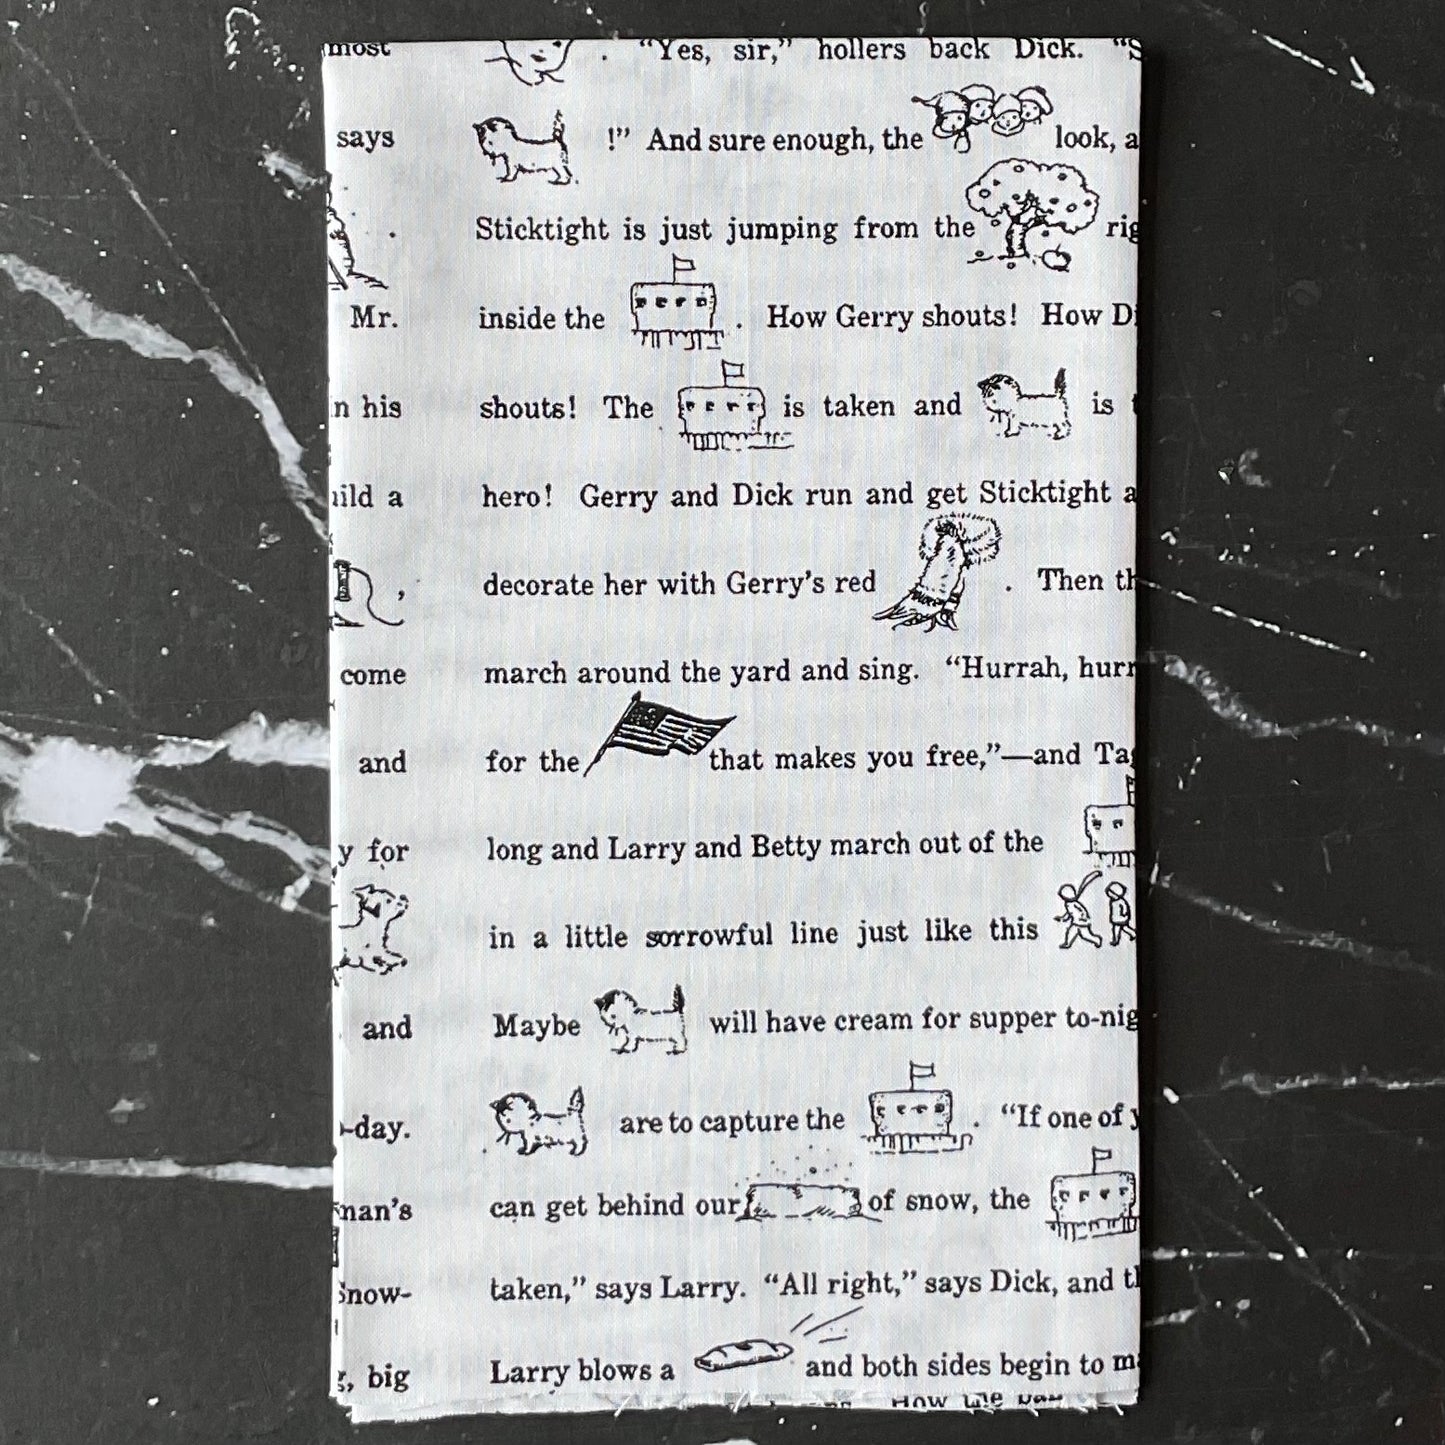 most . “Yes, sir,” hollers back Dick. “S
says !” And sure enough, the look, a
. Sticktight is just jumping from the rig
Mr. inside the . How Gerry shouts! How Di
n his shouts! The is taken and is t
uild a hero! Gerry and Dick run and get Sticktight a
, decorate her with Gerry’s red . Then th
come march around the yard and sing. “Hurrah, hurr
and for the that makes you free,”—and Tag
y for long and Larry and Betty march out of the
in a little sorrowful line just like this
and Maybe will have cream for supper to-nig
-day. are to capture the . “If one of y
man’s can get behind our of snow, the
Snow- taken,” says Larry. “All right,” says Dick, and th
g, big Larry blows a and both sides begin to ma
How the